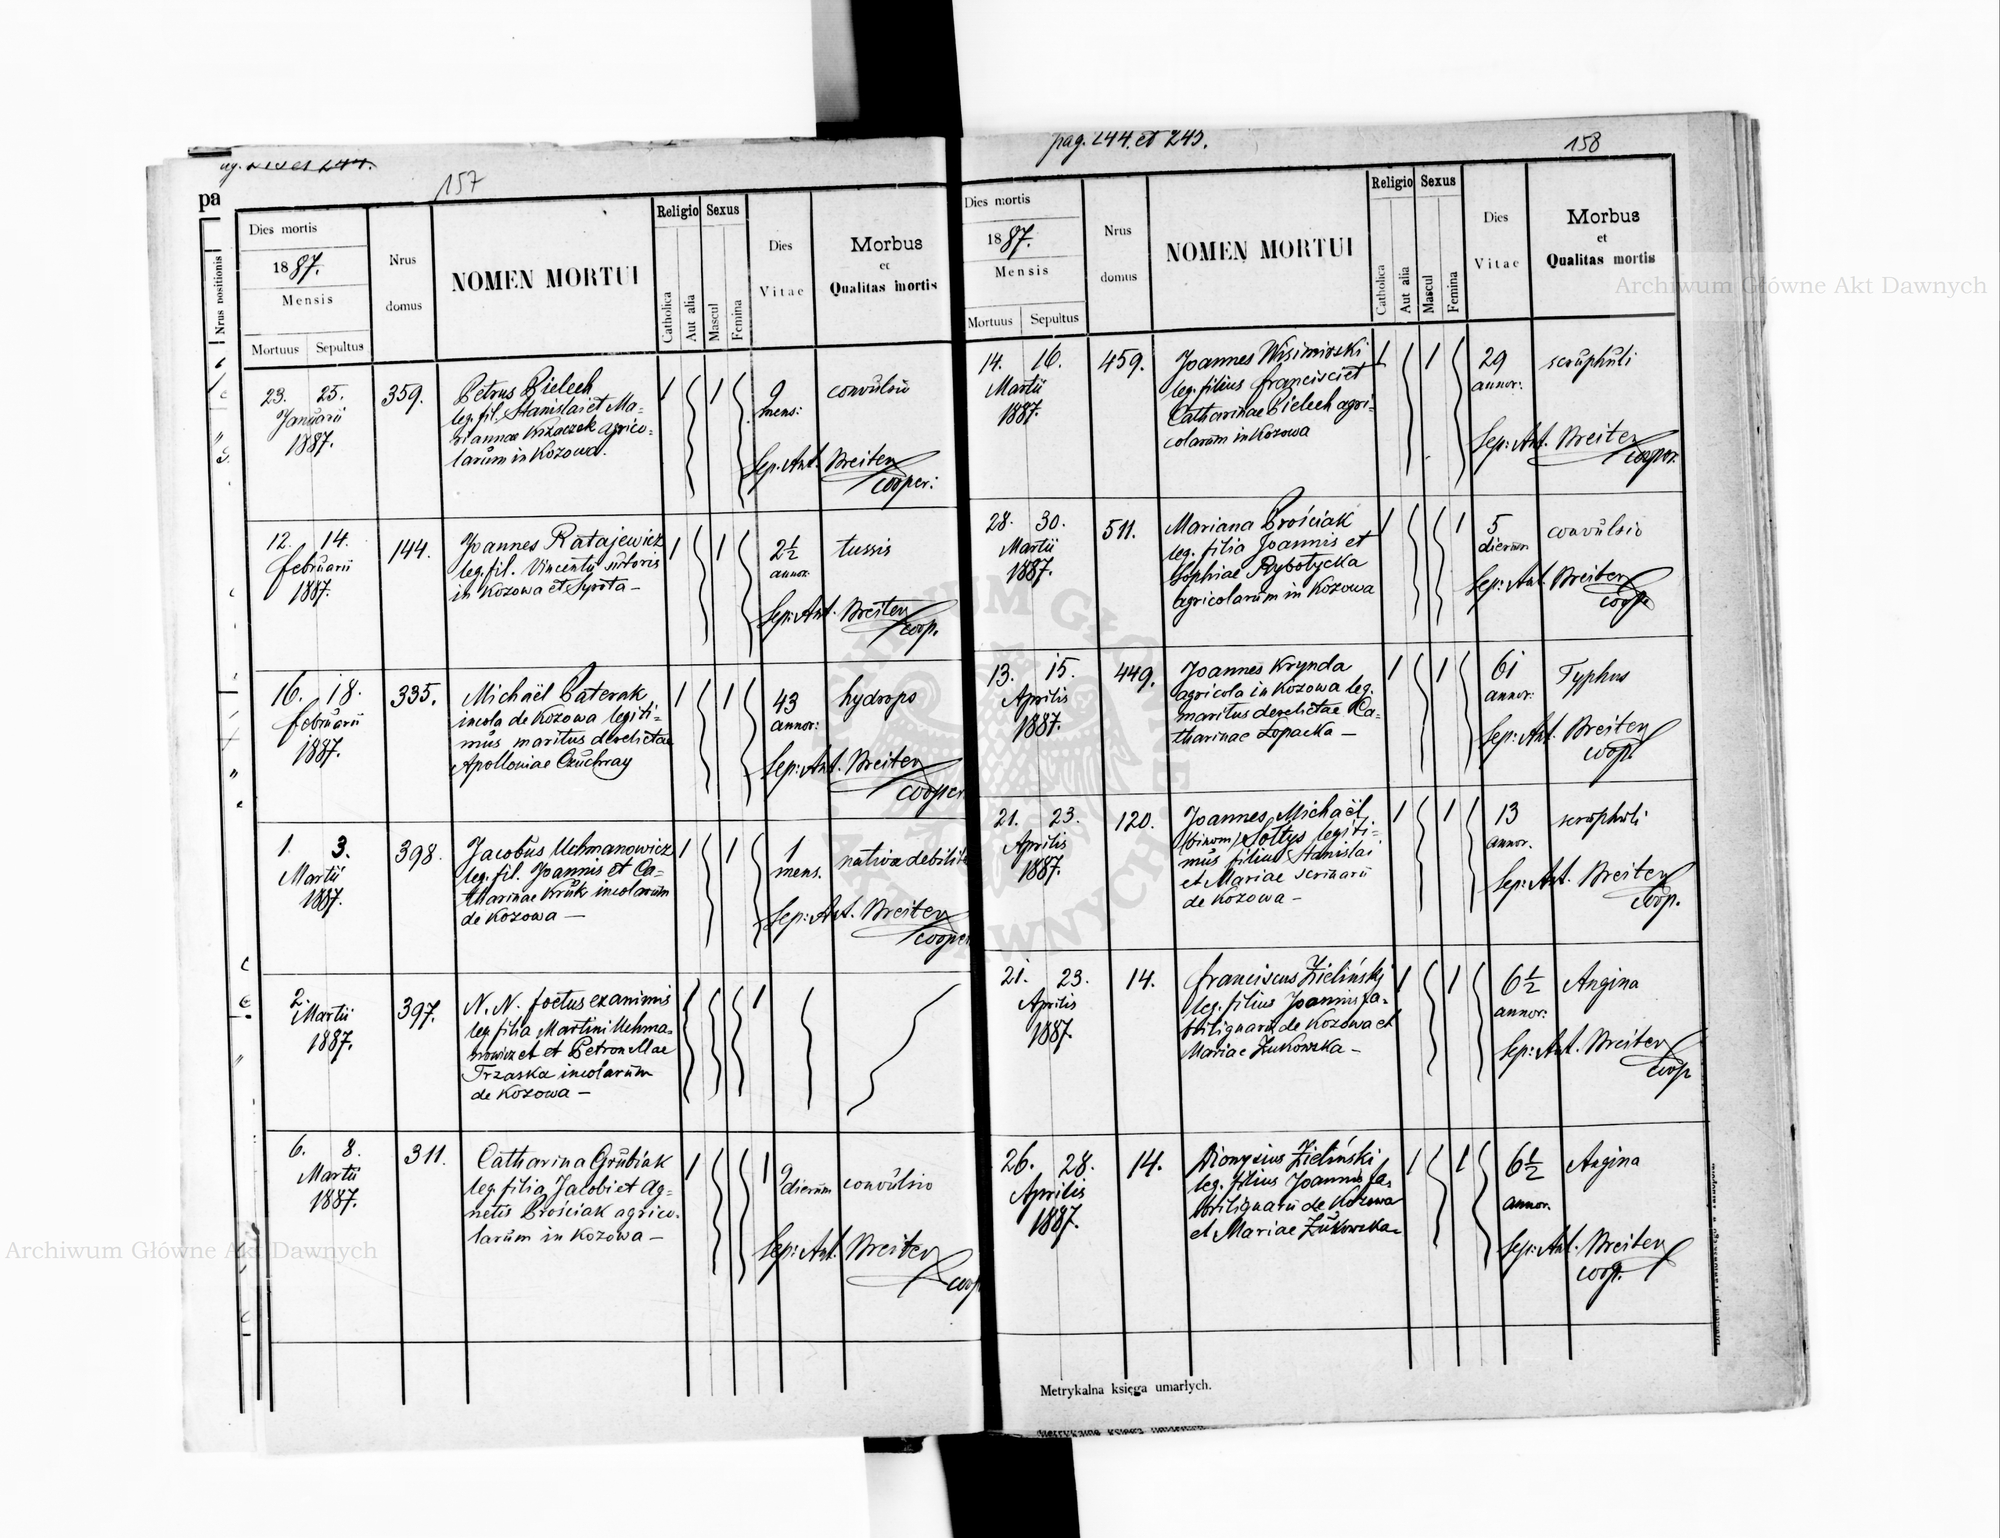 157
pa
Nrus positionis
Dies mortis
1887.
Mensis
Mortuus Sepultus
Nrus
domus
NOMEN MORTUI
Religio
Catholica
Aut alia
Sexus
Mascul
Femina
Dies
Vitae
Morbus
et
Qualitas mortis
23. 25.
Januarii
1887.
359.
Petrus Bielech
leg. fil. Stanislai et Ma-
riannae Krzaczek agrico-
larum in Kozowa.
9
mens:
convulsio
Sep: Ant. Breiter
cooper:
12. 14.
Februarii
1887.
144.
Joannes Ratajewicz
leg. fil. Vincentii sutoris
in Kozowa et Syrota -
2 1/2
annor:
tussis
Sep: Ant. Breiter
coop.
16. 18.
Februarii
1887.
335.
Michaël Paterak
incola de Kozowa legiti-
mus maritus derelictae
Apolloniae Czuchray
43
annor:
hydrops
Sep: Ant. Breiter
cooper.
1. 3.
Martii
1887.
398.
Jacobus Uchmanowicz
leg. fil. Joannis et Ca-
tharinae Kruk incolarum
de Kozowa -
1
mens.
nativa debilit
Sep: Ant. Breiter
cooper
2.
Martii
1887.
397.
N. N. foetus exanimis
leg. filia Martini Uchma-
nowicz et Petronellae
Trzaska incolarum
de Kozowa -
6. 8.
Martii
1887.
311.
Catharina Grubiak
leg. filia Jacobi et Ag-
netis Prościak agrico-
larum in Kozowa -
9
dierum
convulsio
Sep: Ant. Breiter
coop
pag. 244. et 245.
158
Dies mortis
1887.
Mensis
Mortuus Sepultus
Nrus
domus
NOMEN MORTUI
Religio
Catholica
Aut alia
Sexus
Mascul
Femina
Dies
Vitae
Morbus
et
Qualitas mortis
14. 16.
Martii
1887.
459.
Joannes Wisimirski
leg. filius Francisci et
Catharinae Bielech agri-
colarum in Kozowa
29
annor:
scruphuli
Sep: Ant. Breiter
cooper.
28. 30.
Martii
1887.
511.
Mariana Prościak
leg. filia Joannis et
Sophiae Rybotycka
agricolarum in Kozowa
5
dierum
convulsio
Sep: Ant. Breiter
coop.
13. 15.
Aprilis
1887.
449.
Joannes Krynda
agricola in Kozowa leg.
maritus derelictae Ca-
tharinae Łopacka -
61
annor:
Typhus
Sep: Ant. Breiter
coop.
21. 23.
Aprilis
1887.
120.
Joannes, Michaël
(binom) Sołtys legiti-
mus filius Stanislai
et Mariae scrinarii
de Kozowa -
13
annor.
scrophuli
Sep: Ant. Breiter
coop.
21. 23.
Aprilis
1887.
14.
Franciscus Zieliński
leg. filius Joannis fa-
brilignarii de Kozowa et
Mariae Żukowska -
6 1/2
annor:
Angina
Sep: Ant. Breiter
coop
26. 28.
Aprilis
1887.
14.
Dionysius Zieliński
leg. filius Joannis fa-
brilignarii de Kozowa
et Mariae Żukowska
6 1/2
annor.
Angina
Sep: Ant. Breiter
coop.
Metrykalna księga umarłych.
Archiwum Główne Akt Dawnych
Archiwum Główne Akt Dawnych
ARCHIWUM GŁÓWNE AKT DAWNYCH